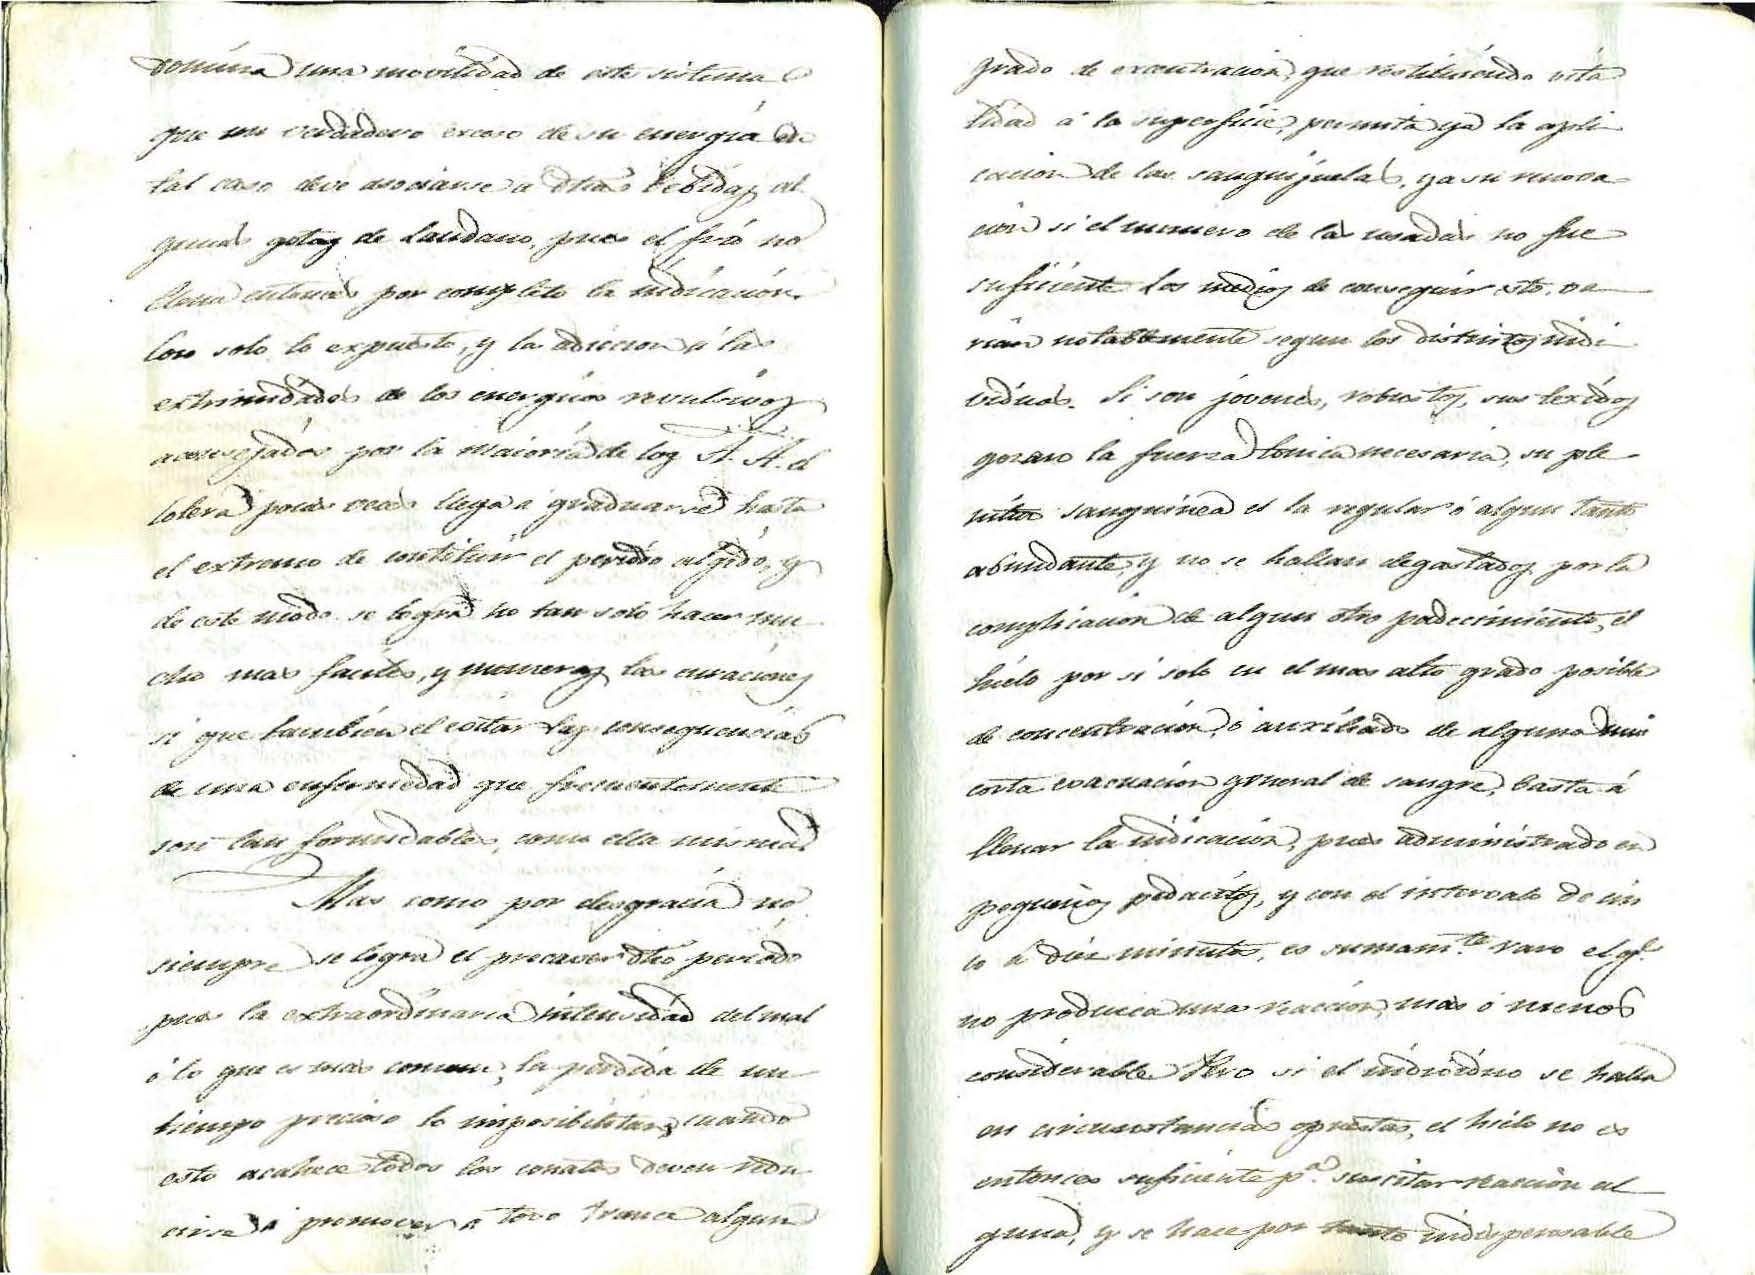 domina una movilidad de este sistema
que un verdadero exceso de su energia en
tal caso deve asociarse a dhas bebidas al
gunas gotas de Laudano, pues el frio no
llena entonces por completo la indicacion.
Con solo lo expuesto, y la adicion á las
extrimidades de los energicos revulsivos
aconsejados por la maioria de los A. A. el
colera pocas veces llega á graduarse hasta
el extremo de contituir el periodo algido, y
de este modo se logra no tan solo hacer mu
cho mas faciles, y numerosas las curaciones
si que tambien el evitar las consequencias
de una enfermedad que frecuentemente
son tan formidables, como ella misma
Mas como por desgracia no
siempre se logra el precaver dho periodo
pues la extraordinaria intensidad del mal
ó lo que es mas comun, la perdida de un
tiempo precioso lo imposibilitan, cuando
esto acahece todos los conatos deven redu
cirse á promover á todo trance algun
grado de excentracion, que restituiendo vita
lidad á la superficie, permita ya la apli
cacion de las sanguijuelas, ya su renova
cion si el numero de las usadas no fue
suficiente Los medios de conseguir esto, va
rian notablemente segun los distintos indi
viduos. Si son jovenes, robustos, sus texidos
gozan la fuerza tonica necesaria, su ple
nitud sanguinea es la regular ó algun tanto
abundante, y no se hallan degastados por la
complicacion de algun otro padecimiento, el
hielo por si solo en el mas alto grado posible
de concentracion, ó auxiliado de alguna mui
corta evacuacion general de sangre, basta á
llenar la indicacion, pues administrado en
pequeños pedacitos, y con el intervalo de cin
co á diez minutos, es sumamte raro el qe
no produzca una reaccion, mas ó menos
considerable Pero si el individuo se halla
en circunstancias opuestas, el hielo no es
entonces suficiente pa suscitar reaccion al
guna, y se hace por tanto indispensable